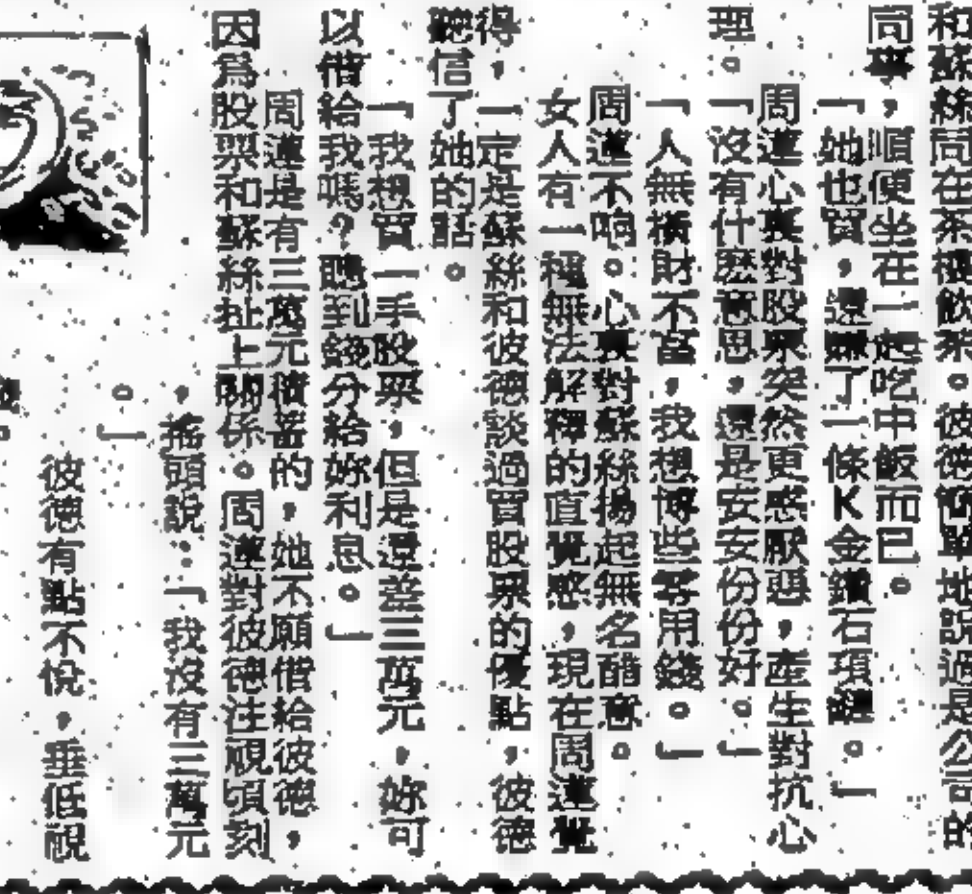 和蘇絲同在茶樓飲茶。彼德簡單地説過是公司的
同事，順便坐在一起吃中飯而已。」
「她也買，還嫌了一條K金鑽石項鏈。」
周蓮心裏對股票突然更感厭惡，產生對抗心
理。
「沒有什麽意思，還是安安份份好。」
「人無橫財不富，我想博些零用錢。」
周蓮不响。心裏對蘇絲揚起無名醋意。
女人有一種無法解釋的直覺感，現在周蓮覺
得，一定是蘇絲和彼德談過買股票的優點，彼德
聽信了她的話。
「我想買一手股票，但是還差三萬元，妳可
以借給我嗎？賺到錢分給妳利息。」
周蓮是有三萬元積蓄的，她不願借給彼德，
因爲股票和蘇絲扯上關係。周蓮對彼德注視頃刻
，搖頭說：「我沒有三萬元
。」
彼德有點不悅，垂低視